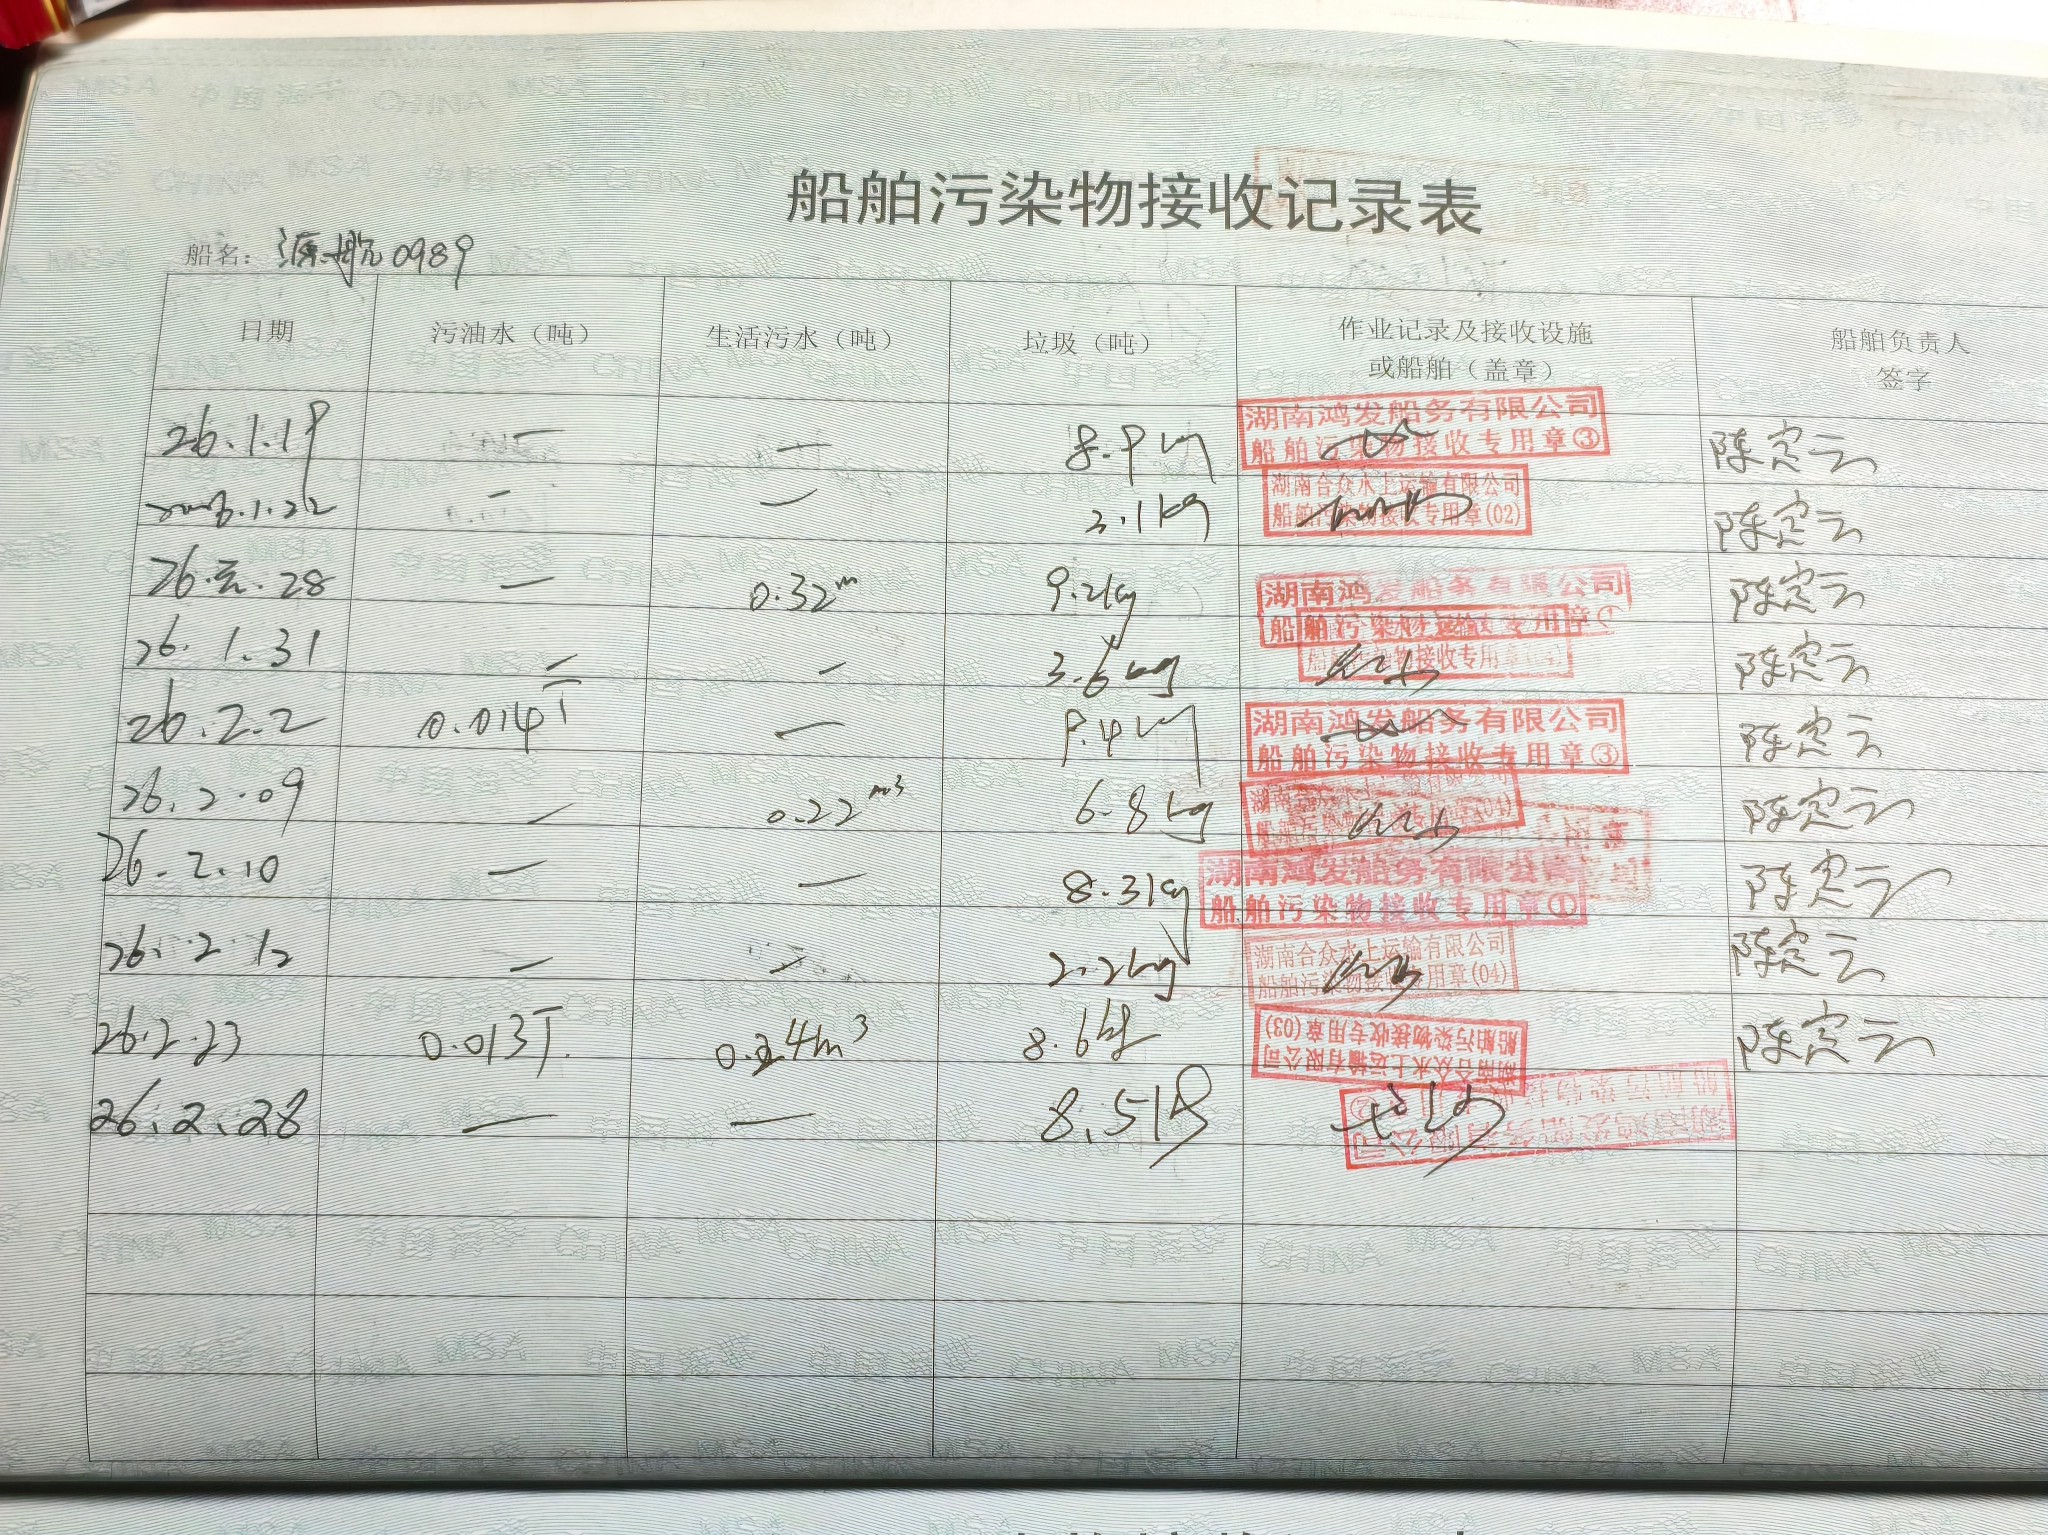 船舶污染物接收记录表
船名：源航0989
日期 污油水（吨） 生活污水（吨） 垃圾（吨） 作业记录及接收设施或船舶（盖章） 船舶负责人签字
26.1.19 — — 8.9kg 湖南鸿发船务有限公司 船舶污染物接收专用章③ 陈定云
2026.1.22 — — 3.1kg 湖南合众水上运输有限公司 船舶污染物接收专用章(02) 陈定云
26.元.28 — 0.32m 9.2kg 湖南鸿发船务有限公司 船舶污染物接收专用章① 陈定云
26.1.31 — — 3.6kg 船舶污染物接收专用章(04) 陈定云
26.2.2 0.014T — 9.4kg 湖南鸿发船务有限公司 船舶污染物接收专用章③ 陈定云
26.2.09 — 0.22m³ 6.8kg 湖南合众水上运输有限公司 (04) 陈定云
26.2.10 — — 8.3kg 湖南鸿发船务有限公司 船舶污染物接收专用章① 陈定云
26.2.12 — — 2.2kg 湖南合众水上运输有限公司 船舶污染物接收专用章(04) 陈定云
26.2.23 0.013T. 0.24m³ 8.6kg 湖南合众水上运输有限公司 船舶污染物接收专用章(03) 陈定云
26.2.28 — — 8.5kg 湖南鸿发船务有限公司 船舶污染物接收专用章